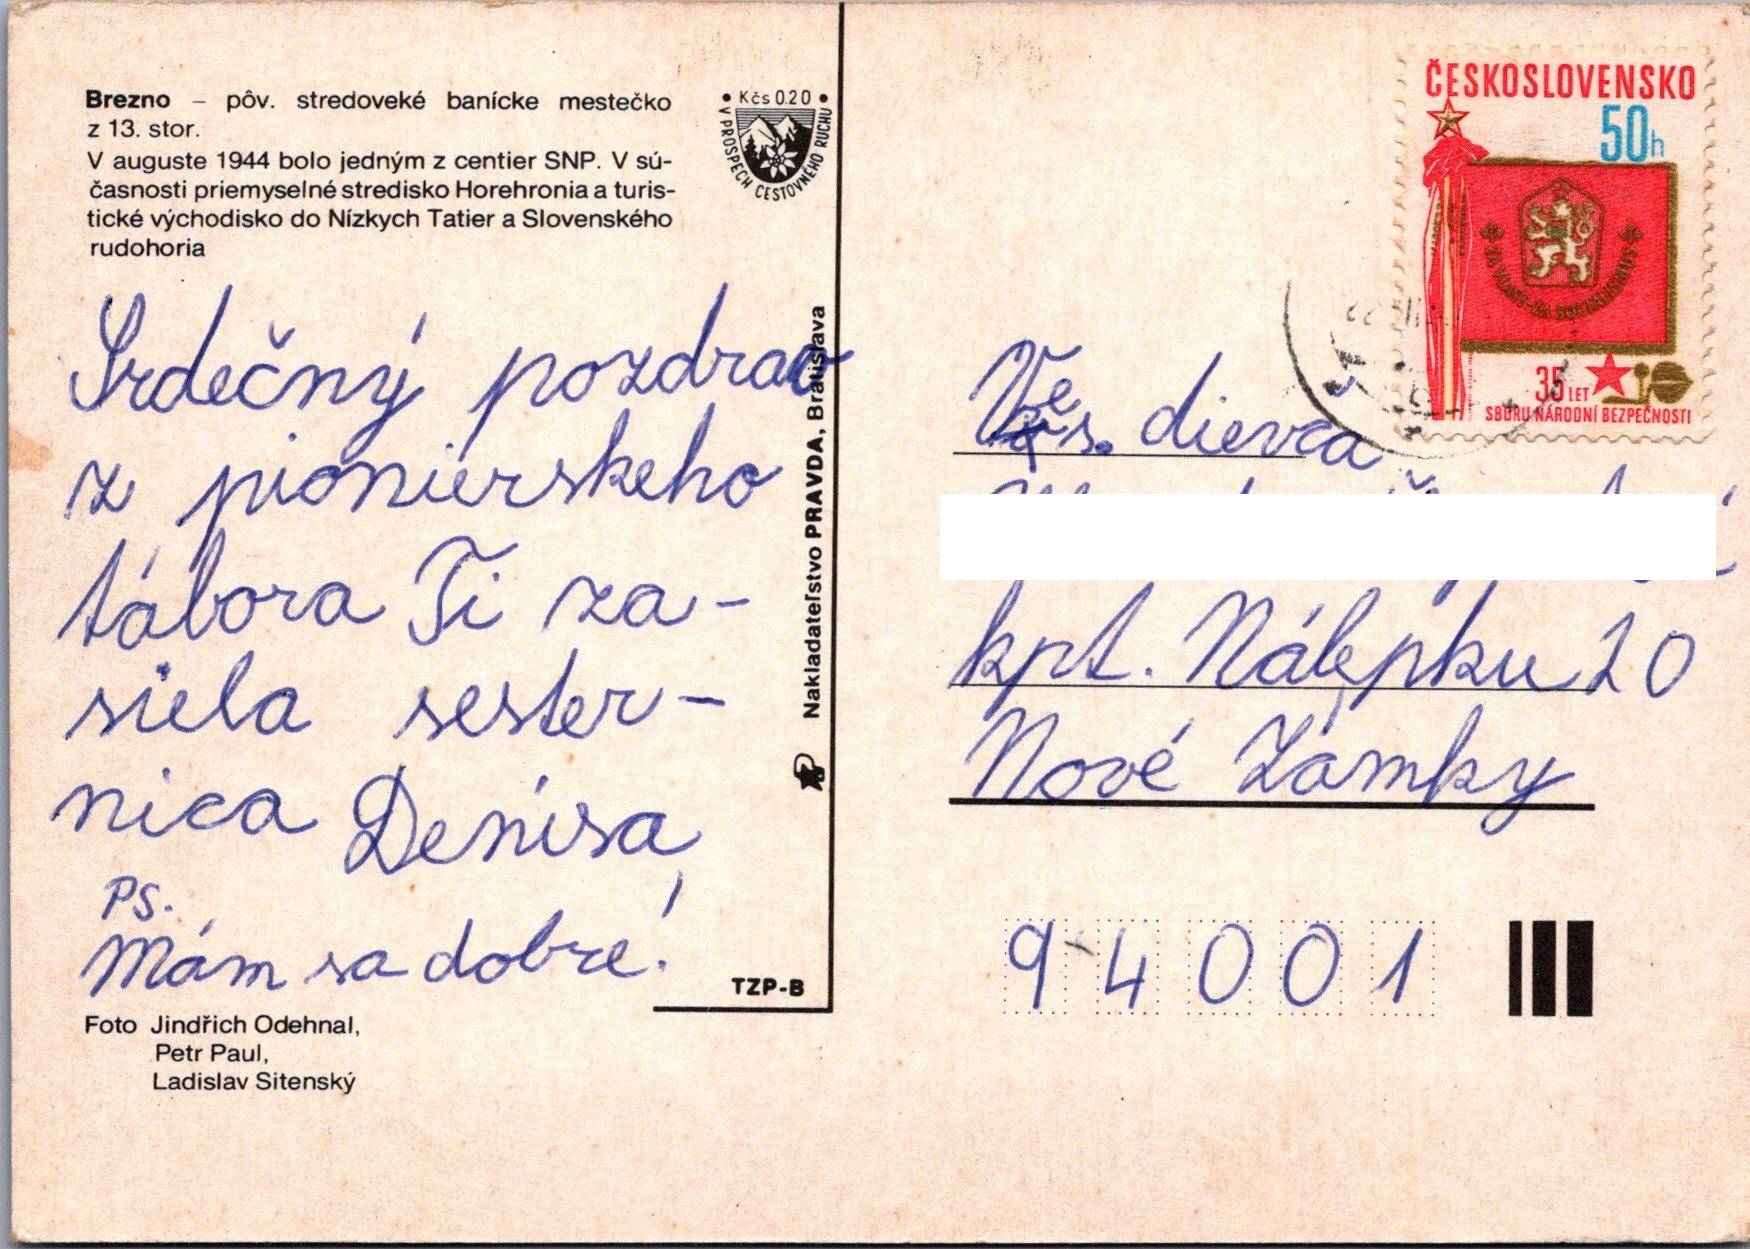 Brezno – pôv. stredoveké banícke mestečko
z 13. stor.
V auguste 1944 bolo jedným z centier SNP. V sú-
časnosti priemyselné stredisko Horehronia a turis-
tické východisko do Nízkych Tatier a Slovenského
rudohoria
• Kčs 0.20 •
V PROSPECH CESTOVNÉHO RUCHU
Srdečný pozdrav
z pionierskeho
tábora Ti za-
siela sester-
nica Denisa
PS.
Mám sa dobre!
Foto Jindřich Odehnal,
Petr Paul,
Ladislav Sitenský
TZP-B
Nakladateľstvo PRAVDA, Bratislava
ČESKOSLOVENSKO
50h
ZA VLAST - ZA SOCIALISMUS
35 LET
SBORU NÁRODNÍ BEZPEČNOSTI
dievča
kpt. Nálepku 20
Nové Zámky
94001